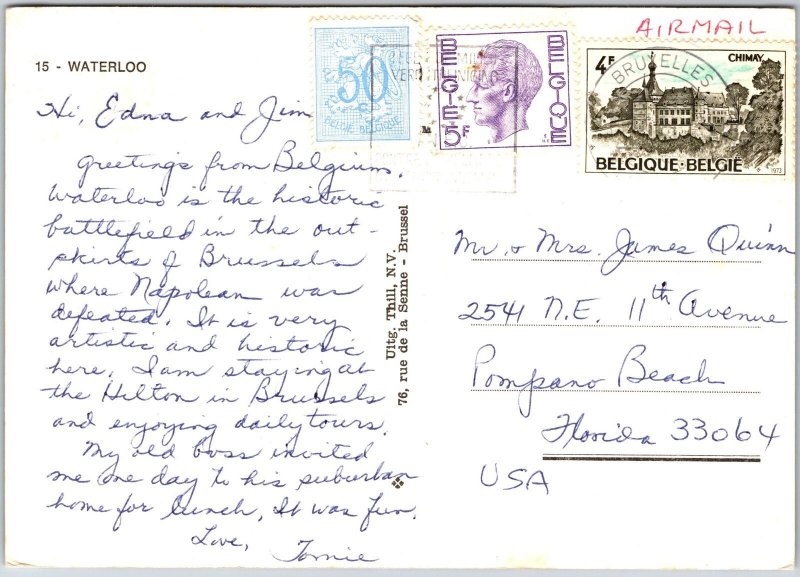 15 - WATERLOO
Hi, Edna and Jim
Greetings from Belgium.
Waterloo is the historic
battlefield in the out-
skirts of Brussels
where Napolean was
defeated. It is very
artistic and historic
here. I am staying at
the Hilton in Brussels
and enjoying daily tours.
My old boss invited
me one day to his suburban
home for lunch. It was fun.
Love, Tomie
Uitg. Thill, N.V.
76, rue de la Senne - Brussel
50
BELGIE BELGIQUE
BELGIE 5F BELGIQUE
AIRMAIL
4F CHIMAY
BRUXELLES
BELGIQUE·BELGIË
1973
Mr. & Mrs. James Quinn
2541 N.E. 11th Avenue
Pompano Beach
Florida 33064
USA